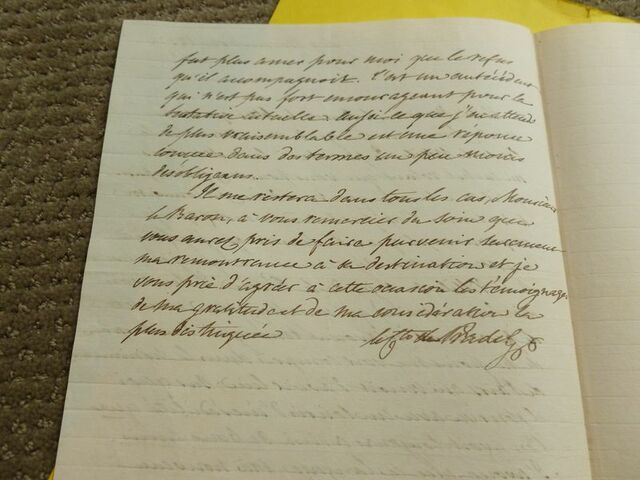 fut plus amer pour moi que le refus
qu'il accompagnoit. C'est un antécédent
qui n'est pas fort encourageant pour la
tentative actuelle. Aussi ce que j'attens
de plus vraisemblable est une réponse
conçue dans des termes un peu moins
désobligeans.
Il me restera dans tous les cas, Monsieur
le Baron, à vous remercier du soin que
vous aurez pris de faire parvenir surement
ma remontrance à sa destination et je
vous prie d'agréer à cette occasion les témoignages
de ma gratitude et de ma considération la
plus distinguée
le Cte de